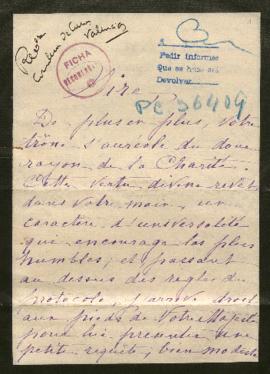 Valencia
FICHA
Pedir informes
Que se haga así
Devolver.
Sire
PE 30409
De plus en plus, Votre
trône s'auréole du doux
rayon de la Charité.
Cette vertu divine revêt
dans Votre main, un
caractère d'universalité
qui encourage les plus
humbles; et passant
au dessus des règles du
protocole, j'arrive droit
aux pieds de Votre Majesté
pour lui présenter une
petite requête, bien modeste